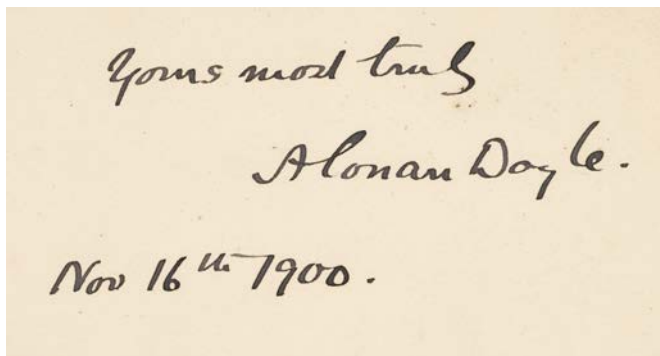 Yours most truly
A Conan Doyle.
Nov 16th 1900.